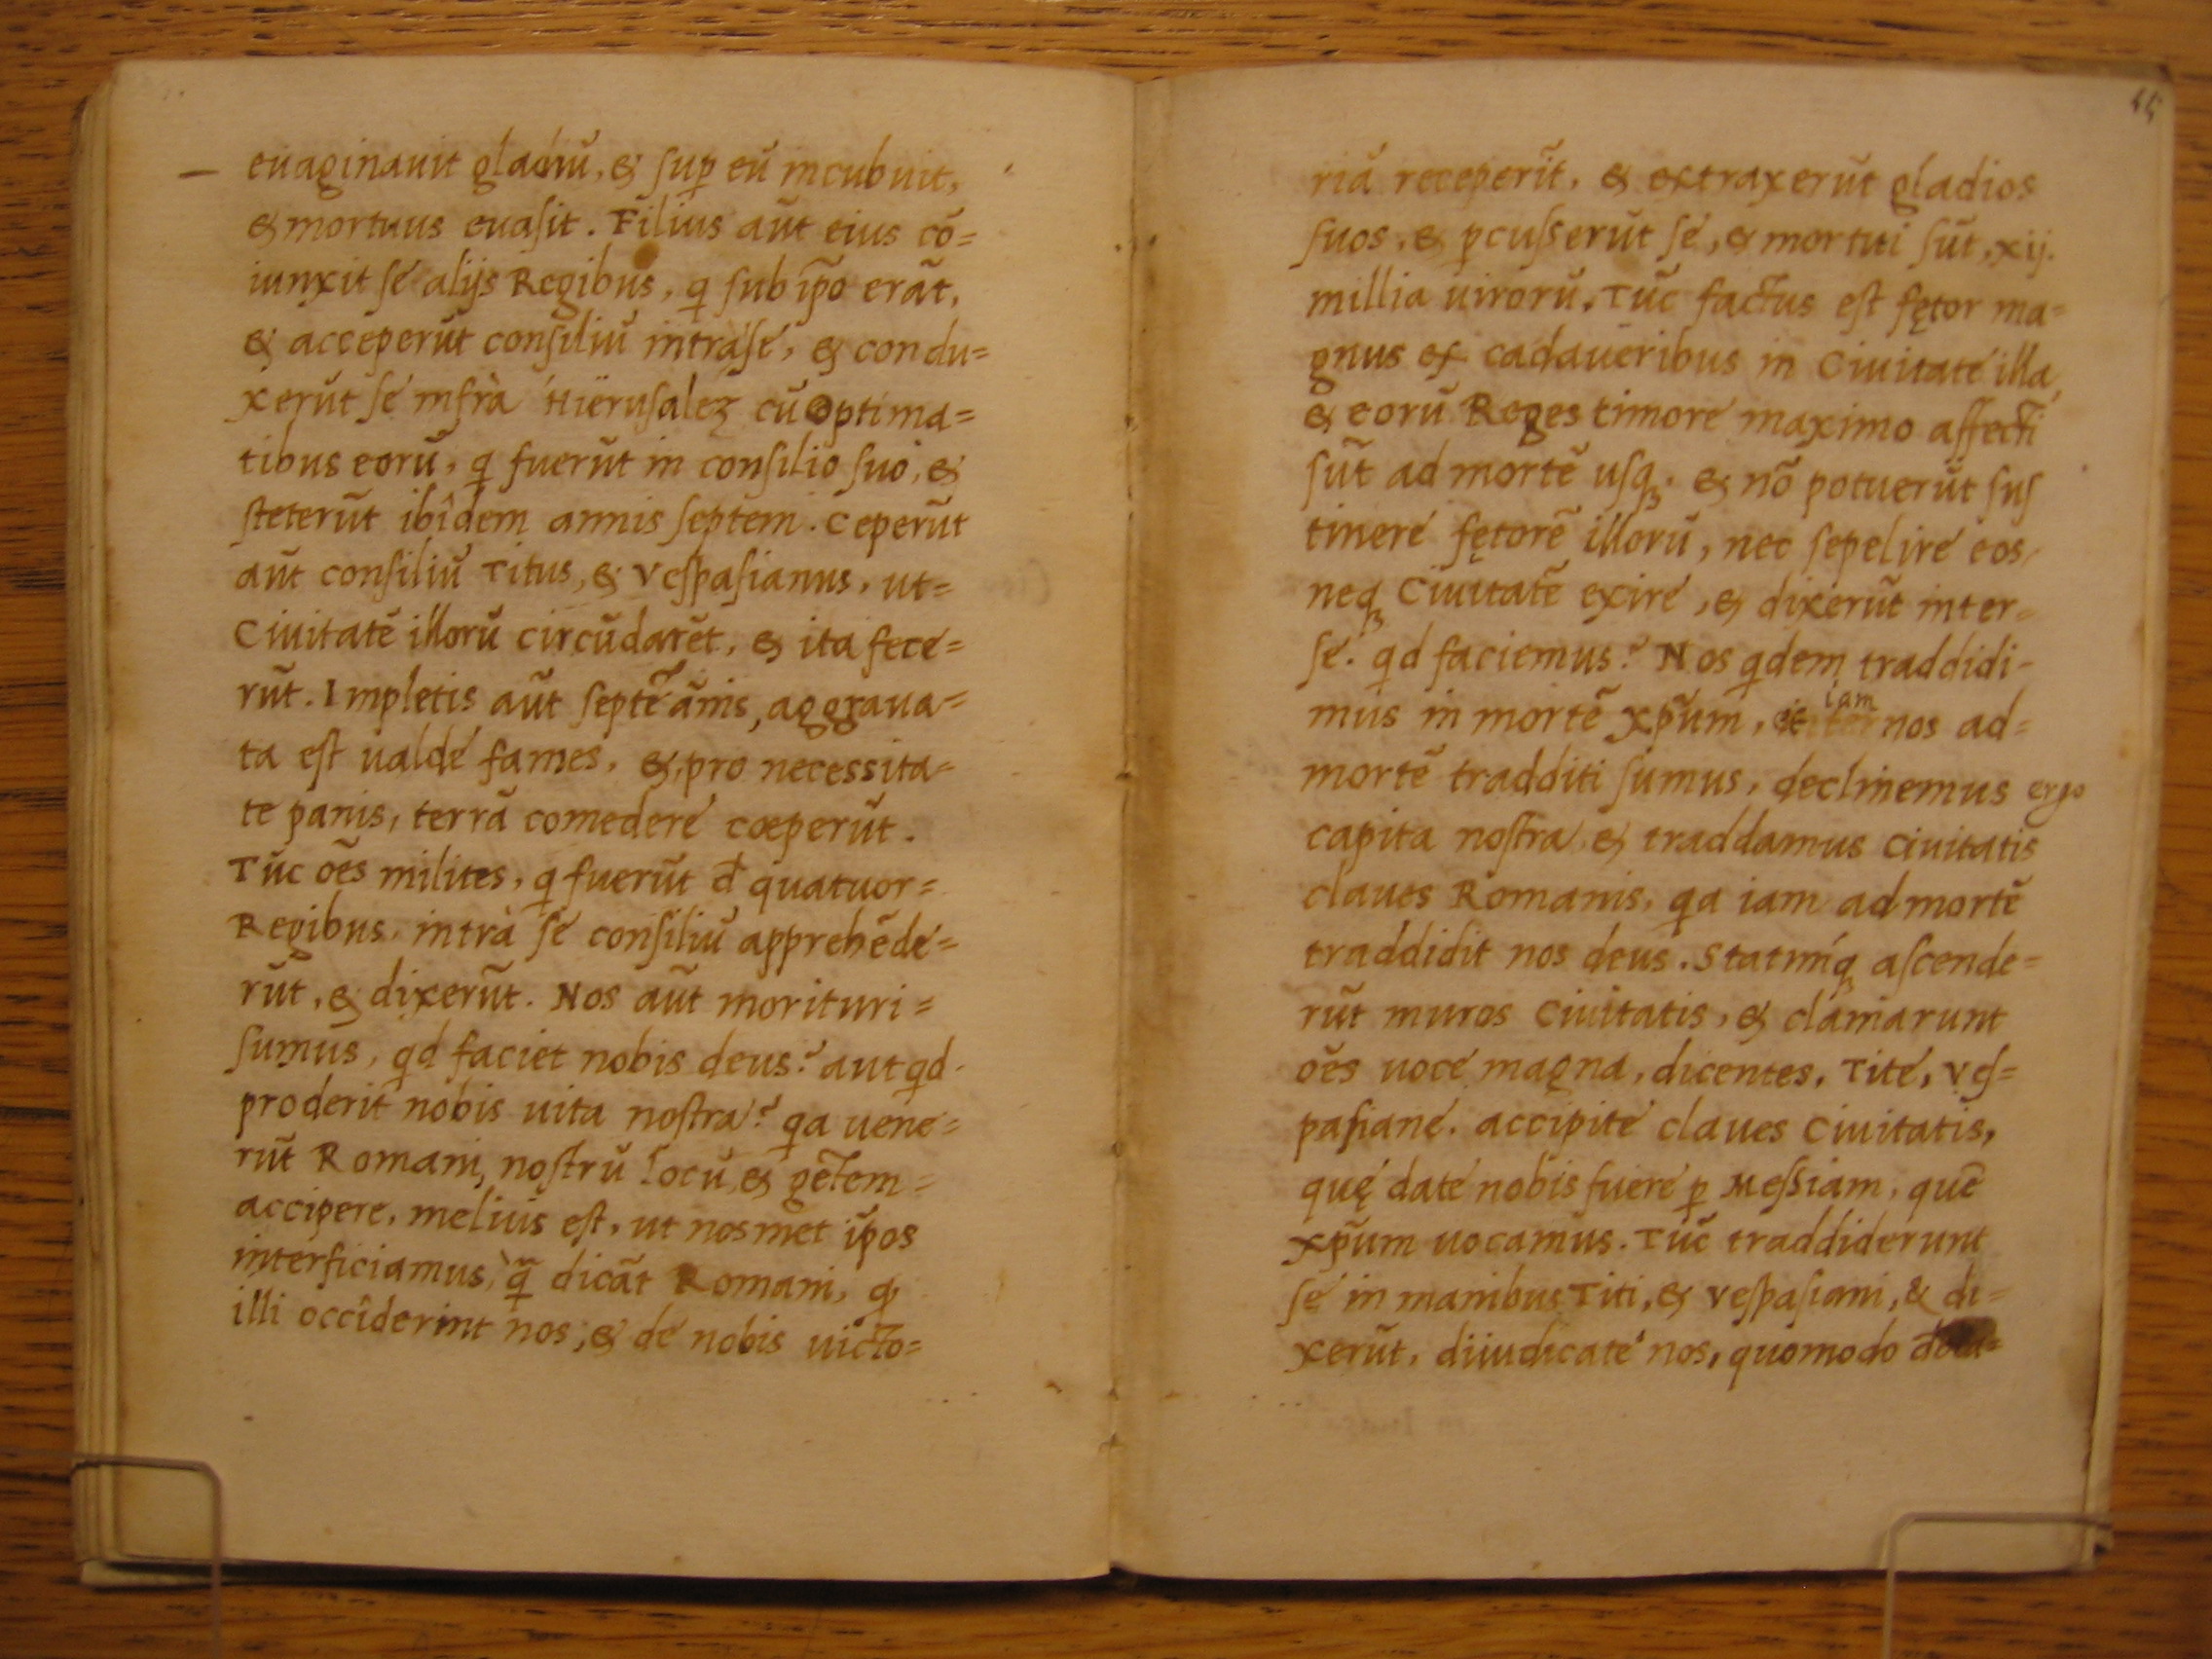 — euaginauit gladiū, & sup̱ eū incubuit,
& mortuus euasit. Filius aūt eius cō=
iunxit se alijs Regibus, q sub ip̄o erāt,
& acceperūt consiliū intràse, & condu=
xerūt se infrà Hierusalez cū optima=
tibus eorū, q fuerūt in consilio suo, &
steterūt ibîdem annis septem. Ceperūt
aūt consiliū Titus, & Vespasianus, ut=
Ciuitatē illorū circūdarēt, & ita fece=
rūt. Impletis aūt septē āñis, aggraua=
ta est ualde fames, & pro necessita=
te panis, terrā comedere cœperūt.
Tūc oēs milites, q fuerūt đ quatuor=
Regibus, intrà se consiliū apprehēde=
rūt, & dixerūt. Nos aūt morituri=
sumus, qd faciet nobis deus? aut qd
proderit nobis uita nostra? qa uene=
rūt Romani, nostrū locū & gētem=
accipere, melius est, ut nosmet ip̄os
interficiamus, q̄ dicāt Romani, ꝙ
illi occîderint nos, & de nobis uicto=
45
riā receperīt. & extraxerūt gladios
suos, & ꝑcusserūt se, & mortui sūt, xij.
millia uirorū. Tūc factus est fętor ma=
gnus ex cadaueribus in Ciuitate illa,
& eorū Reges timore maximo affecti
sūt ad mortē usqꝫ. & nō potuerūt sus
tinere fętorē illorū, nec sepelire eos,
neqꝫ Ciuitatē exire, & dixerūt inter=
se. qd faciemus? Nos qdem traddidi=
mus in mortē xp̄um, et iam nos ad=
mortē tradditi sumus, declinemus ergo
capita nostra, & traddamus Ciuitatis
claues Romanis, qa iam ad mortē
traddidit nos deus. Statimqꝫ ascende=
rūt muros Ciuitatis, & clamarunt
oēs uoce magna, dicentes, Tite, Ves=
pasiane. accipite claues Ciuitatis,
quę date nobis fuere ꝑ Messiam, quē
xp̄um uocamus. Tūc traddiderunt
se in manibus Titi, & Vespasiani, & di=
xerūt, diiudicate nos, quomodo